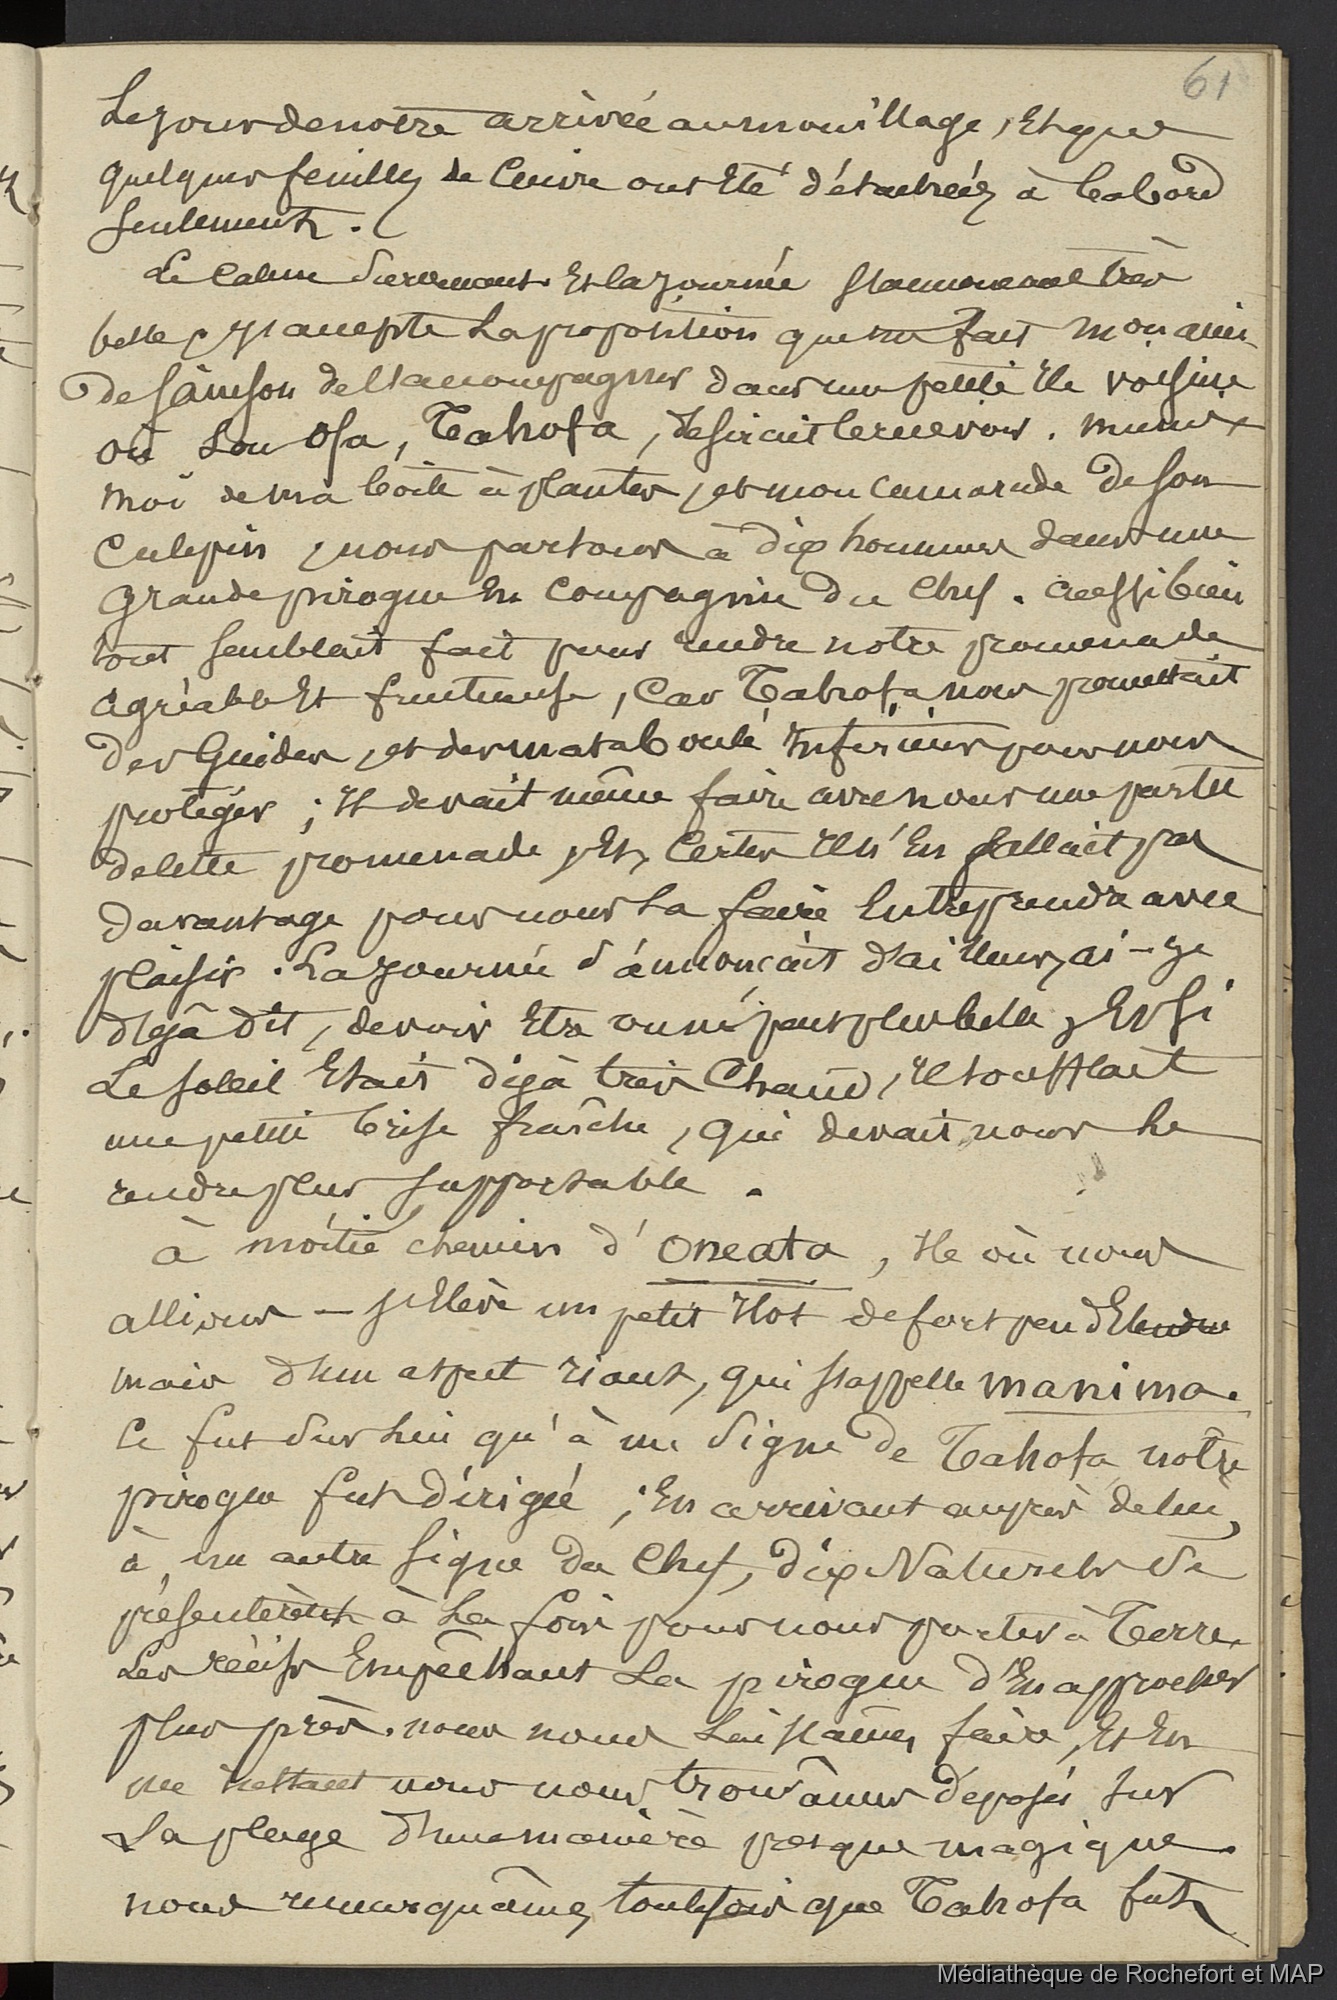 61
Le jour de notre arrivée au mouillage, Et que
quelques feuilles de Cuivre ont Eté détachées à babord
seulement.
Le Calme survenant Et la journée s'annonçant très
belle, j'accepte La proposition que me fait mon ami
de Sainson de l'accompagner dans une petite Ile voisine
où son Ofa, Tahofa, désirait le recevoir. muni
moi de ma boite à plantes, et mon camarade de son
Calepin, nous partons à dix hommes dans une
grande pirogue En Compagnie du Chef. aussi bien
tout semblait fait pour rendre notre promenade
agréable Et fructueuse, Car Tahofa nous promettait
des Guides, et des mataboulé Inférieurs pour nous
protéger; Il devait même faire avec nous une partie
de cette promenade, Et, Certes Il n'En fallait pas
davantage pour nous La faire Entreprendre avec
plaisir. La journée s'annonçait d'ailleurs, ai-je
déjà dit, devoir Etre on ne peut plus belle, Et Si
Le soleil Etait déjà très Chaud, Il soufflait
une petite brise fraîche, qui devait nous Le
rendre plus supportable.
à moitié chemin d'Oneata, Ile où nous
allions — s'Elève un petit Ilot de fort peu d'Etendue
mais d'un aspect riant, qui s'appelle manima.
Ce fut sur Lui qu'à un signe de Tahofa notre
pirogue fut dirigée; En arrivant auprès de lui,
à un autre signe du Chef, dix Naturels se
présentèrent à La fois pour nous porter à Terre,
Les récifs Empêchant La pirogue d'En approcher
plus près. nous nous Laissâmes faire, Et En
un instant nous nous trouvâmes déposés sur
La plage d'une manière presque magique.
nous remarquâmes toutefois que Tahofa fut
Médiathèque de Rochefort et MAP